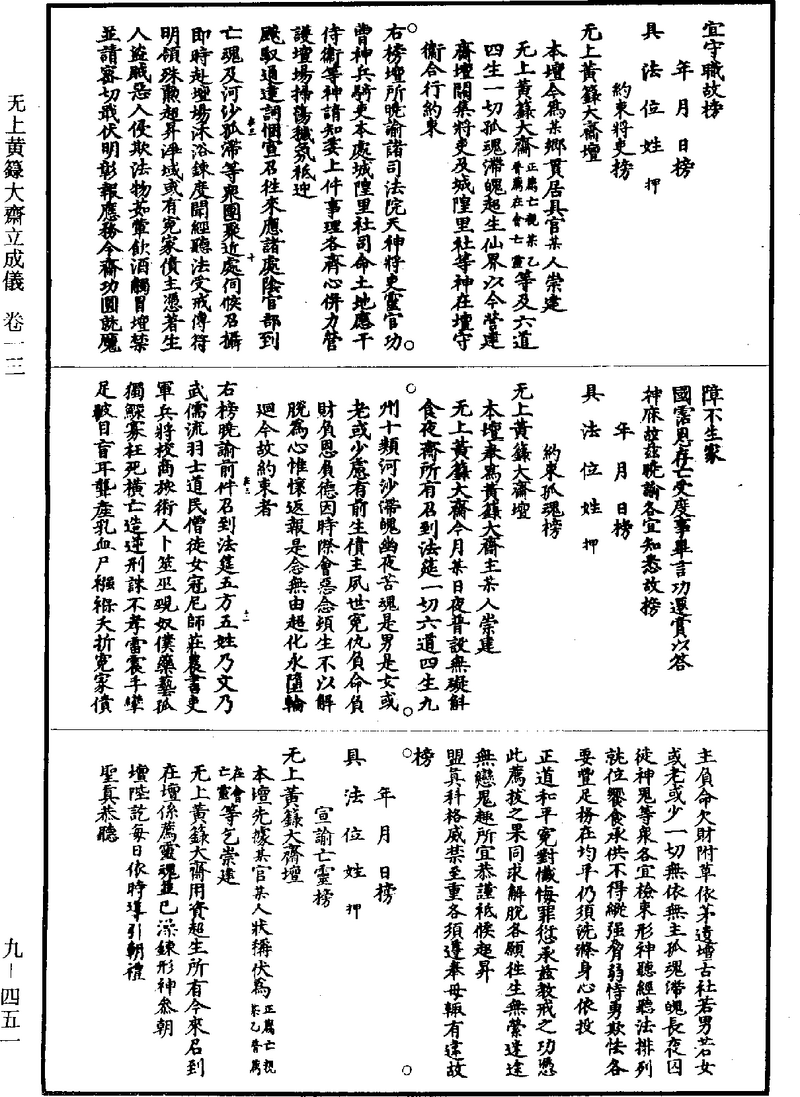 无上黄籙大齋立成儀 卷一三
九－四五一
宜守職故榜
年月日榜
具法位姓押
約束將吏榜
无上黃籙大齋壇
本壇今爲某鄉貫居具官某人崇建
无上黃籙大齋正薦亡親某乙普薦在會亡靈等及六道
四生一切孤魂滯魄超生仙界以今營建
齋壇關集將吏及城隍里社等神在壇守
衛合行約束
右榜壇所曉諭諸司法院天神將吏靈官功
曹神兵騎吏本處城隍里社司命土地應干
侍衛等神請知委上件事理各齊心併力管
護壇場掃蕩穢氛祗迎
飈馭通達詞悃宣召徃來應諸處陰官部到
亡魂及河沙孤滯等衆團聚近處伺候召攝
即時赴壇場沐浴鍊度開經聽法受戒傳符
明領殊勳超昇淨域或有冤家債主憑著生
人盜賊惡人侵欺法物茹葷飲酒觸冒壇禁
並請密切戢伏明彰報應務令齋功圓就魔
障不生家
國霑恩存亡受度事畢言功遷賞以答
神庥故玆曉諭各宜知悉故榜
年月日榜
具法位姓押
約束孤魂榜
无上黃籙大齋壇
本壇奉爲黃籙大齋主某人崇建
无上黃籙大齋今月某日夜普設無礙斛
食夜齋所有召到法筵一切六道四生九
州十類河沙滯魄幽夜苦魂是男是女或
老或少慮有前生債主夙世冤仇負命負
財負恩負德因時際會惡念頭生不以解
脫爲心惟懷返報是念無由超化永墮輪
迴今故約束者
右榜曉諭前件召到法筵五方五姓乃文乃
武儒流羽士道民僧徒女冠尼師莊農書吏
軍兵將校商旅術人卜筮巫覡奴僕藥藝孤
獨鰥寡枉死橫亡造逆刑誅不孝雷震手攣
足跛目盲耳聾産乳血尸襁褓夭折冤家債
主負命欠財附草依茅遺壇古社若男若女
或老或少一切無依無主孤魂滯魄長夜囚
徒神鬼等衆各宜檢束形神聽經聽法排列
就位饗食承供不得縱强脅弱恃勇欺怯各
要豐足務在均平仍須洗滌身心依投
正道和平冤對懺悔罪愆承玆教戒之功憑
此薦拔之果同求解脫各願徃生無縈迷途
無戀鬼趣所宜恭謹祗候超昇
盟真科格威禁至重各須遵奉毋輒有違故
榜
年月日榜
具法位姓押
宣諭亡靈榜
无上黃籙大齋壇
本壇先據某官某人狀稱伏爲正薦亡親某乙普薦
在會亡靈等乞崇建
无上黃籙大齋用資超生所有今來召到
在壇係薦靈魂並已澡鍊形神叅朝
壇陛訖每日依時導引朝禮
聖真恭聽